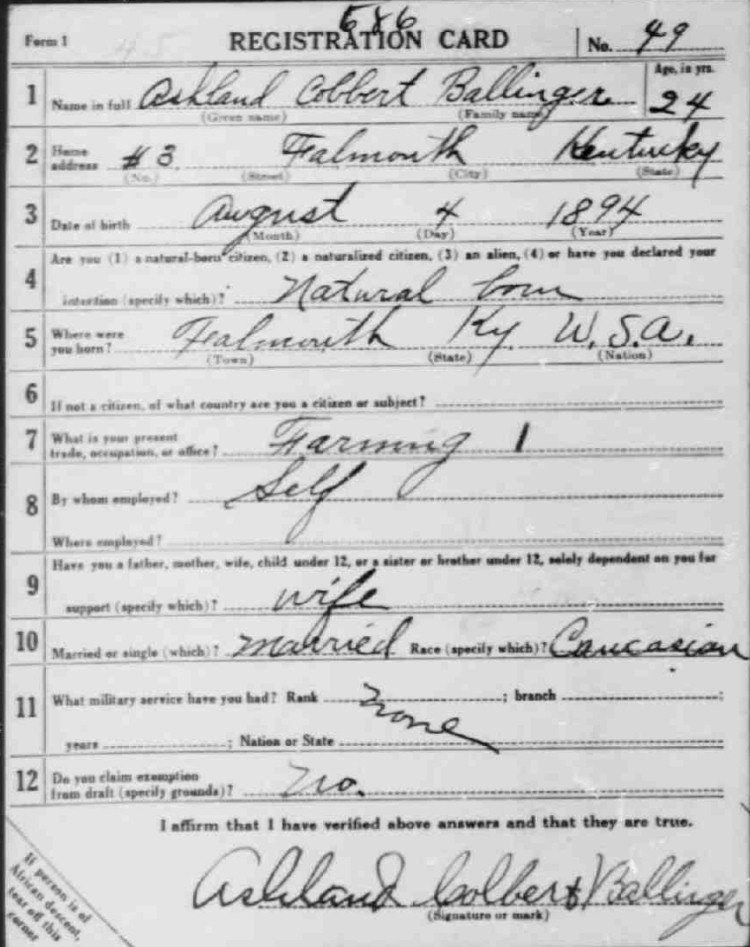 586
Form 1 45 REGISTRATION CARD No. 49
1 Name in full Ashland Cobbert Ballinger Age, in yrs. 24
(Given name) (Family name)
2 Home address #3 Falmouth Kentucky
(No.) (Street) (City) (State)
3 Date of birth August 4 1894
(Month) (Day) (Year)
4 Are you (1) a natural-born citizen, (2) a naturalized citizen, (3) an alien, (4) or have you declared your
intention (specify which)? Natural born
5 Where were
you born? Falmouth Ky U.S.A.
(Town) (State) (Nation)
6 If not a citizen, of what country are you a citizen or subject?
7 What is your present
trade, occupation, or office? Farming 1
8 By whom employed? Self
Where employed?
9 Have you a father, mother, wife, child under 12, or a sister or brother under 12, solely dependent on you for
support (specify which)? wife
10 Married or single (which)? married Race (specify which)? Caucasian
11 What military service have you had? Rank none ; branch ;
years ; Nation or State
12 Do you claim exemption
from draft (specify grounds)? No.
I affirm that I have verified above answers and that they are true.
Ashland Colbert Ballinger
(Signature or mark)
If person is of
African descent,
tear off this
corner